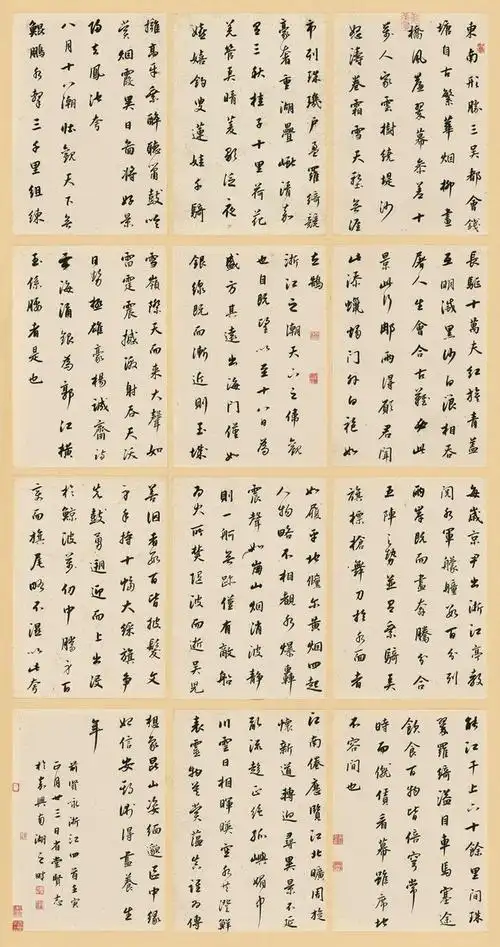 東南形勝三吳都會錢
塘自古繁華烟柳畫
橋風簾翠幕參差十
萬人家雲樹繞堤沙
怒濤卷霜雪天塹無涯
市列珠璣戶盈羅綺競
豪奢重湖疊巘清嘉
有三秋桂子十里荷花
羌管弄晴菱歌泛夜
嬉嬉釣叟蓮娃千騎
擁高牙乘醉聽簫鼓吟
賞烟霞異日圖將好景
歸去鳳池夸
八月十八潮壯觀天下無
鯤鵬水擊三千里組練
長驅十萬夫紅旗青蓋
互明滅黑沙白浪相吞
屠人生會合古難必此
景此行那兩得願君聞
此添蠟燭門外白袍如
立鵠
浙江之潮天下之偉觀
也自既望以至十八日為
盛方其遠出海門僅如
銀線既而漸近則玉城
雪嶺際天而來大聲如
雷霆震撼激射吞天沃
日勢極雄豪楊誠齋詩
云海涌銀為郭江橫
玉係腰者是也
每歲京尹出浙江亭教
閱水軍艨艟數百分列
兩岸既而盡奔騰分合
五陣之勢並有乘騎弄
旗標槍舞刀於水面者
如履平地倏爾黃烟四起
人物略不相覩水爆轟
震聲如崩山烟消波靜
則一舸無跡僅有敵船
為火所焚隨波而逝吳兒
善泅者數百皆披髮文
身手持十幅大綵旗爭
先鼓勇溯迎而上出沒
於鯨波萬仞中騰身百
變而旗尾略不濕以此夸
能江干上下十餘里間珠
翠羅綺溢目車馬塞途
飲食百物皆倍穹常
時而僦賃看幕雖席地
不容間也
江南倦歷覽江北曠周旋
懷新道轉迥尋異景不延
亂流趨正絕孤嶼媚中
川雲日相暉映空水共澄鮮
表靈物莫賞蘊真誰為傳
想象昆山姿緬邈區中緣
始信安期術得盡養生
年
前賢詠浙江四首壬寅
正月廿三日堂賢志
於嘉興南湖之畔